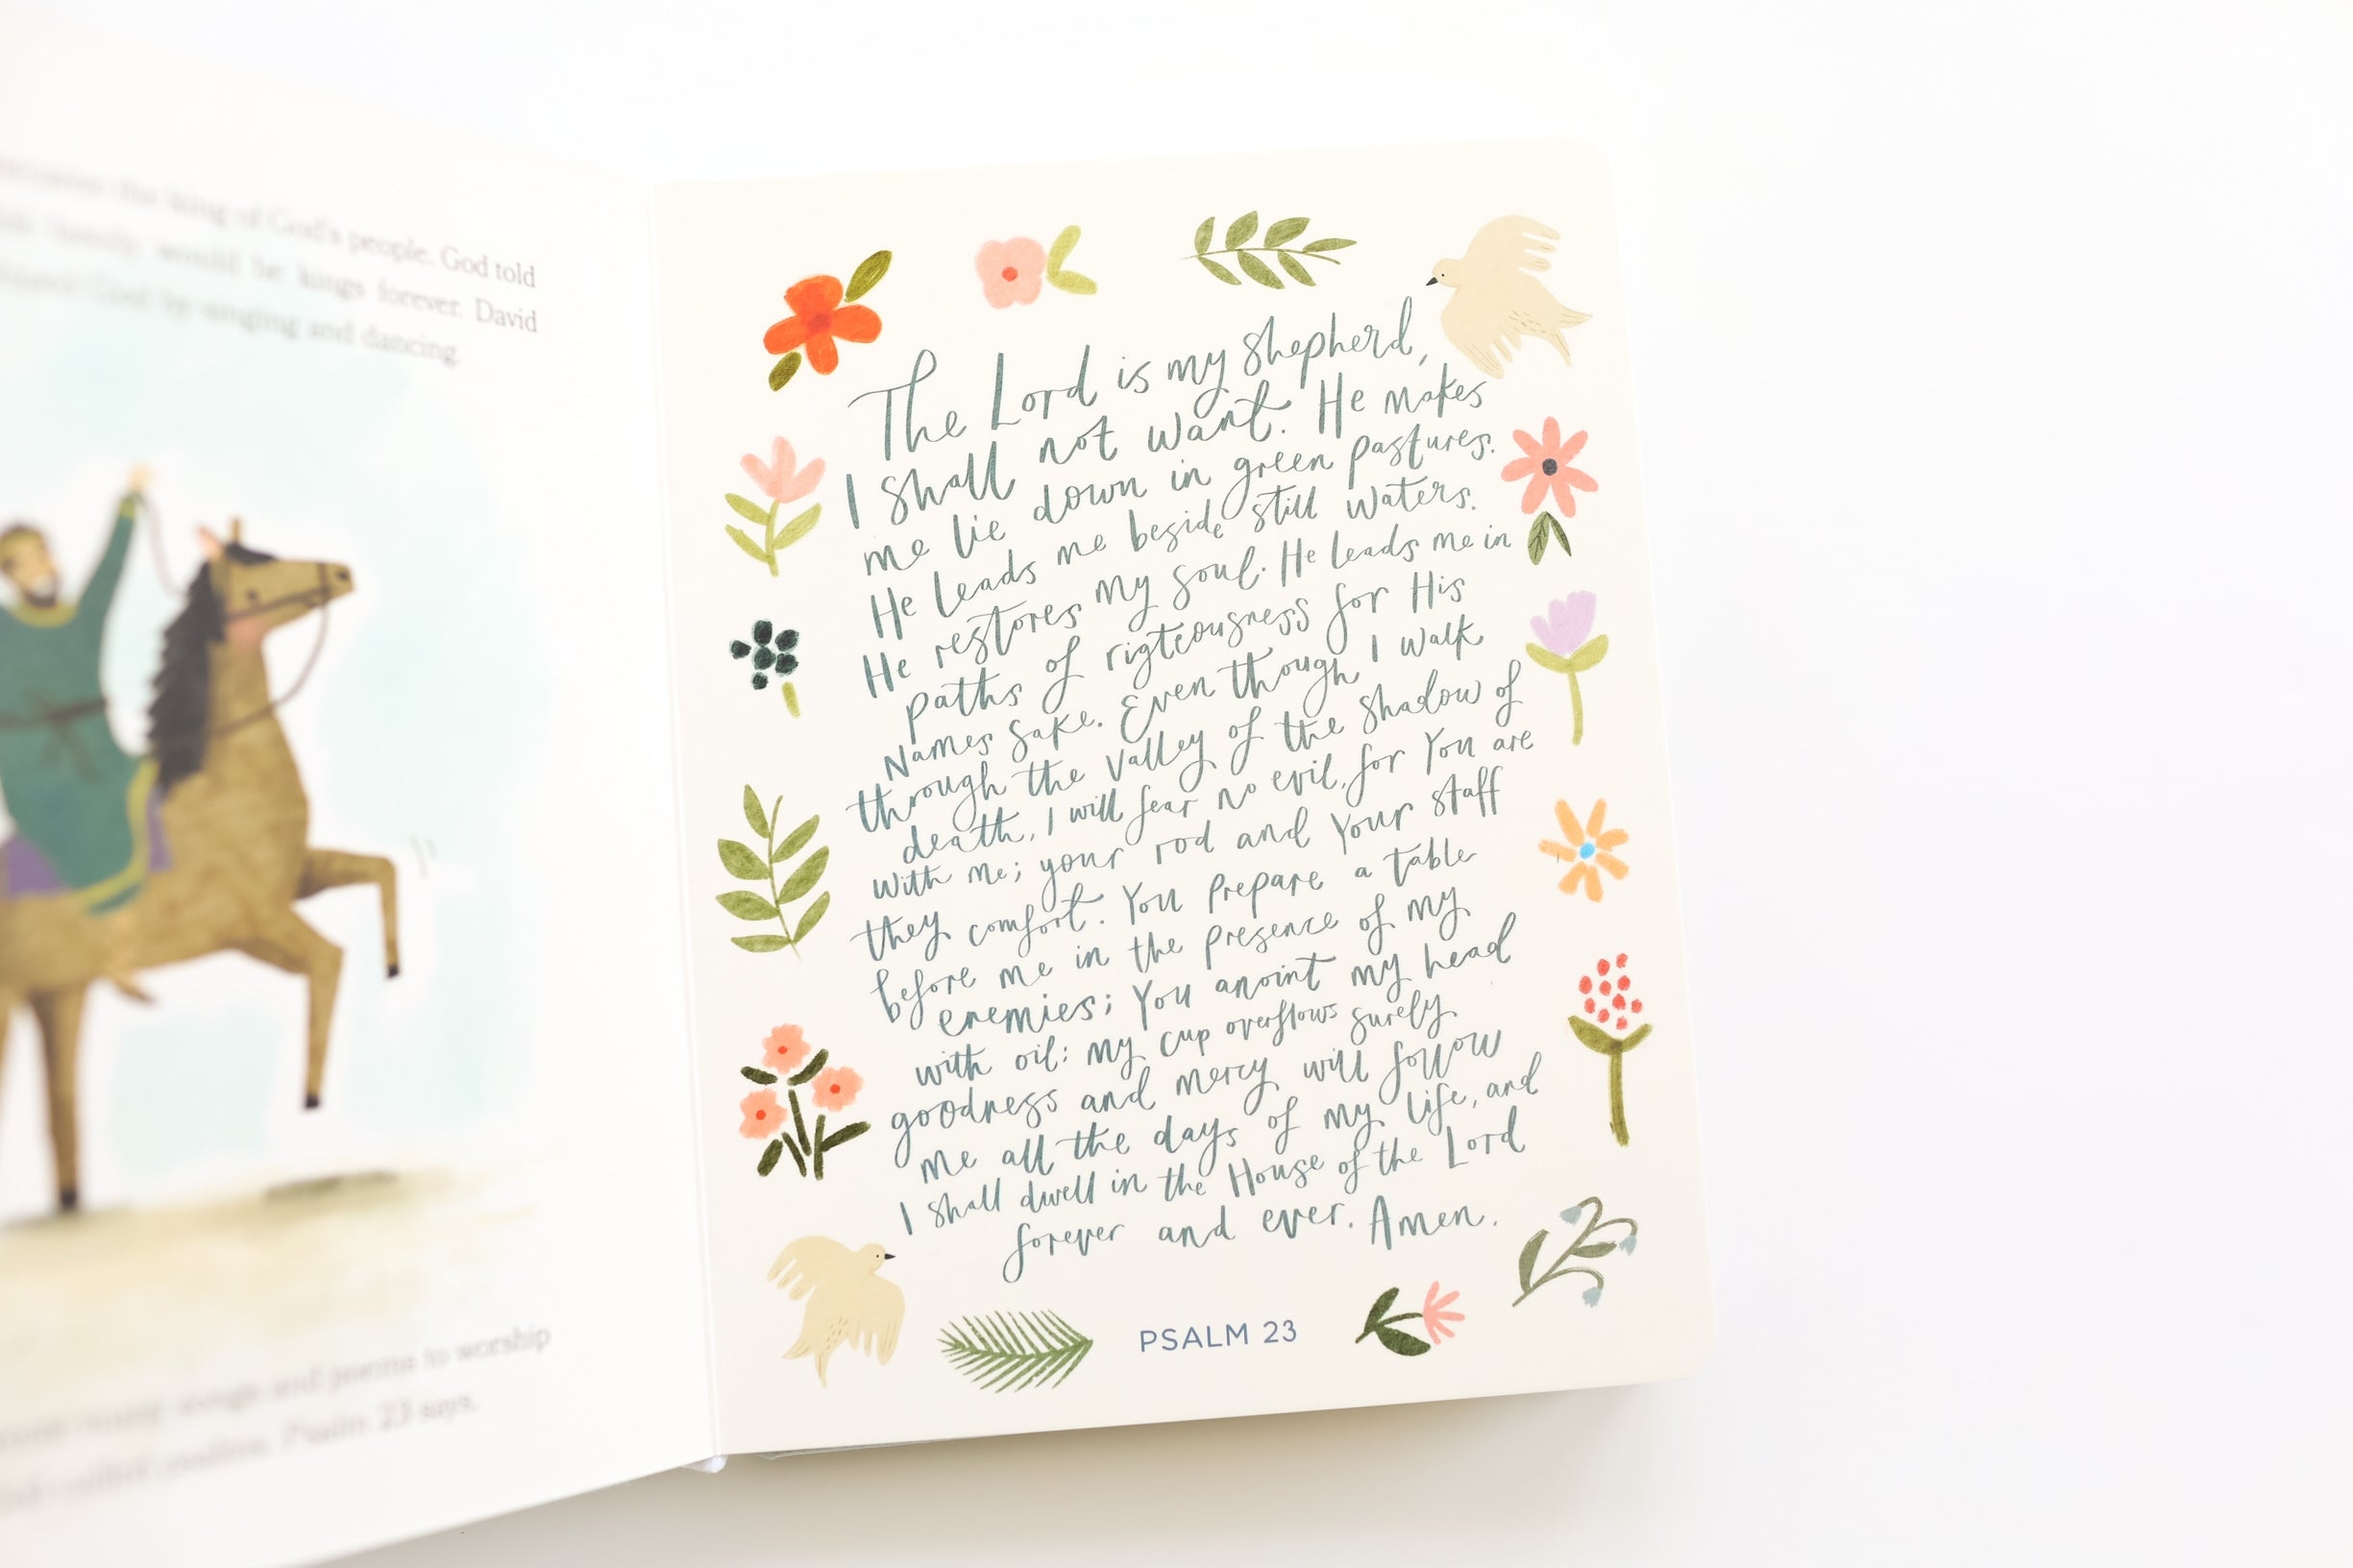 the king of God's people. God told
family would be kings forever. David
God by singing and dancing.
songs and poems to worship
Psalm 23 says,
The Lord is my shepherd,
I shall not want. He makes
me lie down in green pastures.
He leads me beside still waters.
He restores my soul. He leads me in
paths of rigteousness for His
Names sake. Even though I walk
through the valley of the shadow of
death, I will fear no evil, for You are
with me; your rod and Your staff
they comfort. You prepare a table
before me in the presence of my
enemies; You anoint my head
with oil: my cup overflows surely
goodness and mercy will follow
me all the days of my life, and
I shall dwell in the House of the Lord
forever and ever. Amen.
PSALM 23